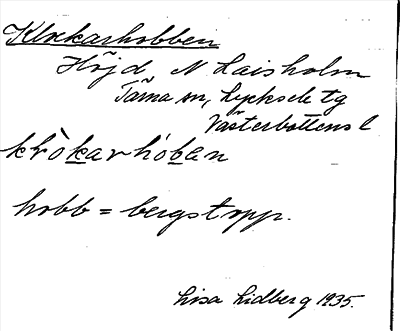 Klockarhobben
Höjd N Laisholm
Tärna sn, Lycksele tg
Västerbottens l
klò̀karhób̲en
hobb = bergstopp.
Lisa Lidberg 1935.